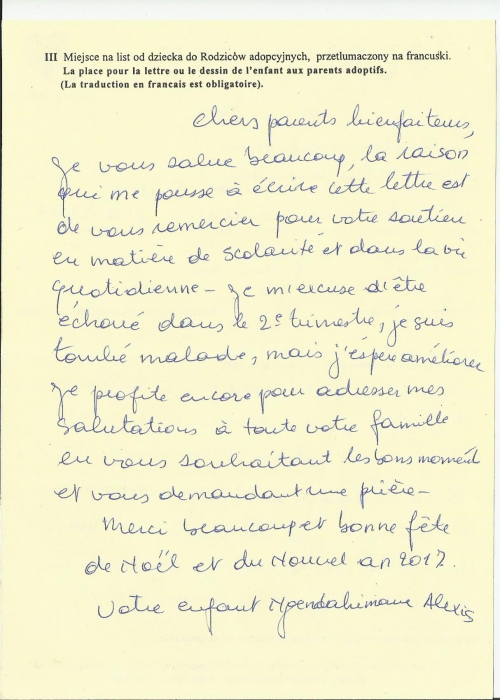 III Miejsce na list od dziecka do Rodziców adopcyjnych, przetłumaczony na francuśki.
La place pour la lettre ou le dessin de l'enfant aux parents adoptifs.
(La traduction en francais est obligatoire).
chers parents bienfaiteurs,
Je vous salue beaucoup, la raison
qui me pousse à écrire cette lettre est
de vous remercier pour votre soutien
en matière de scolarité et dans la vie
quotidienne - Je m'excuse d'être
échoué dans le 2e trimestre, je suis
tombé malade, mais j'éspère améliorer
Je profite encore pour adresser mes
salutations à toute votre famille
en vous souhaitant les bons moment
et vous demandant une prière -
Merci beaucoup et bonne fête
de Noël et du Nouvel an 2017.
Votre enfant Alexis